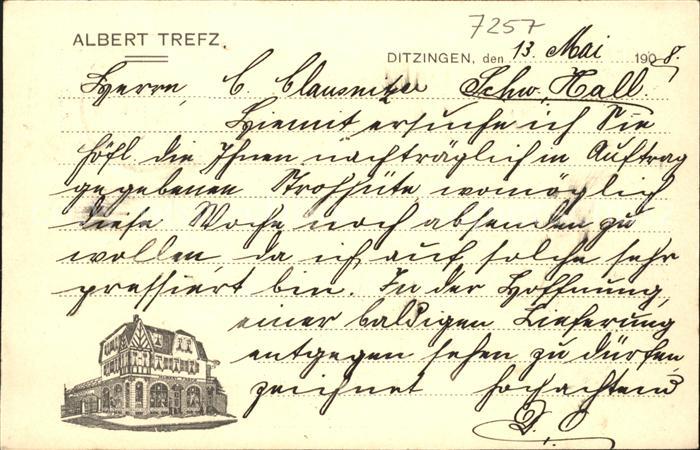 7257
ALBERT TREFZ.
DITZINGEN, den 13. Mai 1908.
Herrn C. Clausnitzer Schw. Hall.
Hiemit ersuche ich Sie
höfl. die Ihnen nachträglich in Auftrag
gegebenen Strohhüte, womöglich
diese Woche noch absenden zu
wollen, da ich auf solche sehr
pressiert bin. In der Hoffnung,
einer baldigen Lieferung
entgegen sehen zu dürfen,
zeichnet hochachtend
D. O